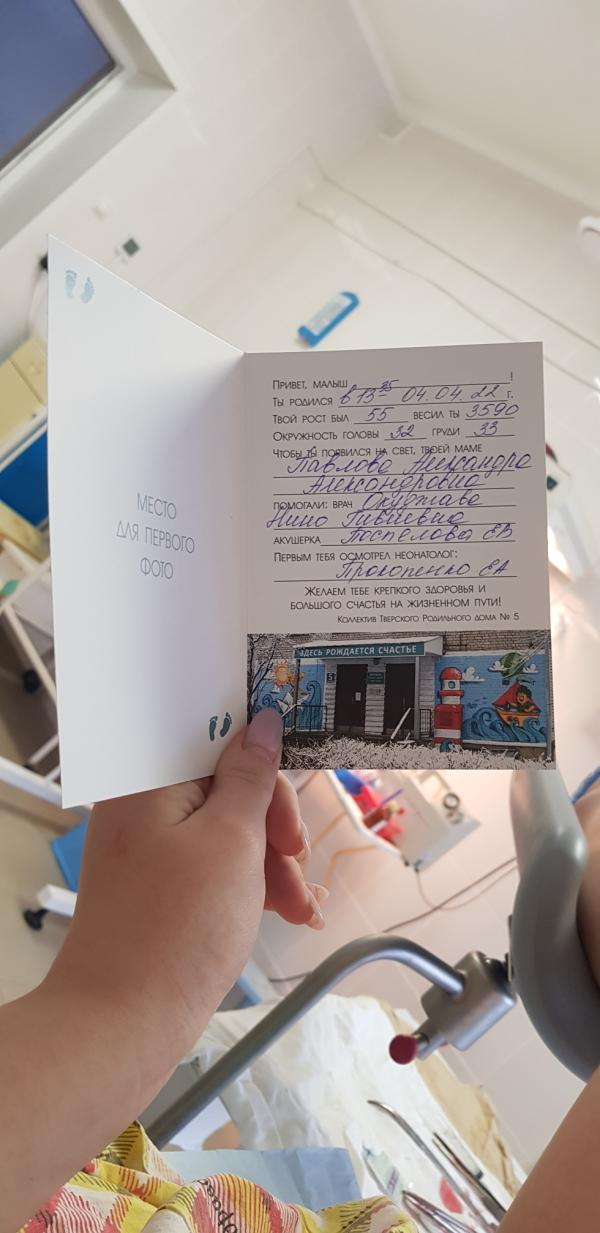 МЕСТО
ДЛЯ ПЕРВОГО
ФОТО
ПРИВЕТ, МАЛЫШ !
ТЫ РОДИЛСЯ в 13 35 04.04.22 г.
ТВОЙ РОСТ БЫЛ 55 ВЕСИЛ ТЫ 3590
ОКРУЖНОСТЬ ГОЛОВЫ 32 ГРУДИ 33
ЧТОБЫ ТЫ ПОЯВИЛСЯ НА СВЕТ, ТВОЕЙ МАМЕ
Павлова Александра
Александровна
ПОМОГАЛИ: ВРАЧ Окуджава
Нино Гивиевна
АКУШЕРКА Поспелова ЕВ
ПЕРВЫМ ТЕБЯ ОСМОТРЕЛ НЕОНАТОЛОГ:
Прокопенко ЕА
ЖЕЛАЕМ ТЕБЕ КРЕПКОГО ЗДОРОВЬЯ И
БОЛЬШОГО СЧАСТЬЯ НА ЖИЗНЕННОМ ПУТИ!
КОЛЛЕКТИВ ТВЕРСКОГО РОДИЛЬНОГО ДОМА № 5
ЗДЕСЬ РОЖДАЕТСЯ СЧАСТЬЕ
5